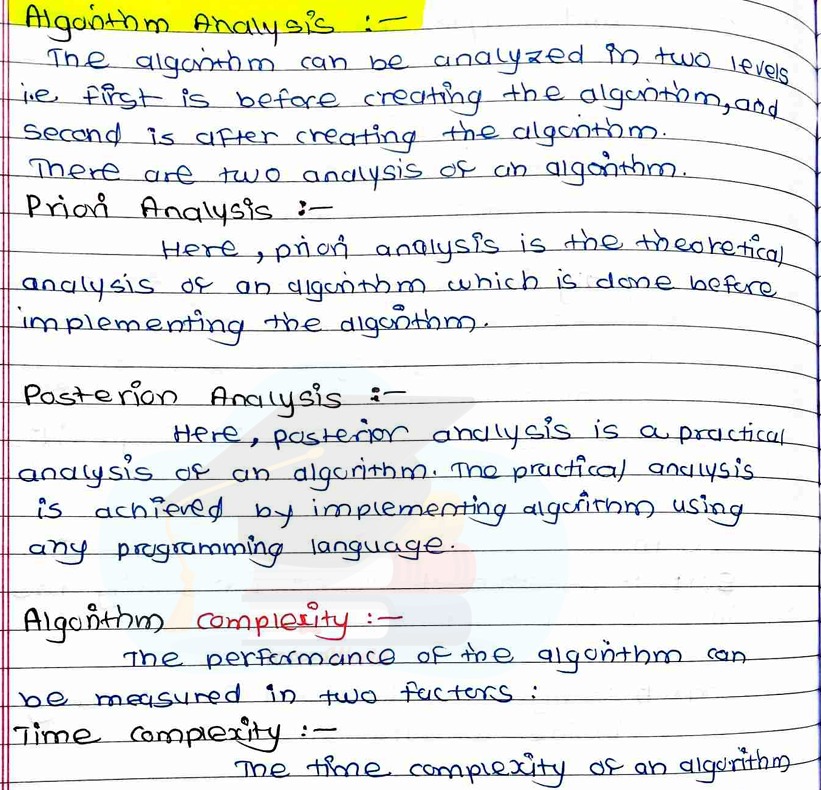 Algorithm Analysis :-
The algorithm can be analyzed in two levels
i.e first is before creating the algorithm, and
second is after creating the algorithm.
There are two analysis of an algorithm.
Priori Analysis :-
Here, priori analysis is the theoretical
analysis of an algorithm which is done before
implementing the algorithm.
Posterior Analysis :-
Here, posterior analysis is a practical
analysis of an algorithm. The practical analysis
is achieved by implementing algorithm using
any programming language.
Algorithm complexity :-
The performance of the algorithm can
be measured in two factors :
Time complexity :-
The time complexity of an algorithm